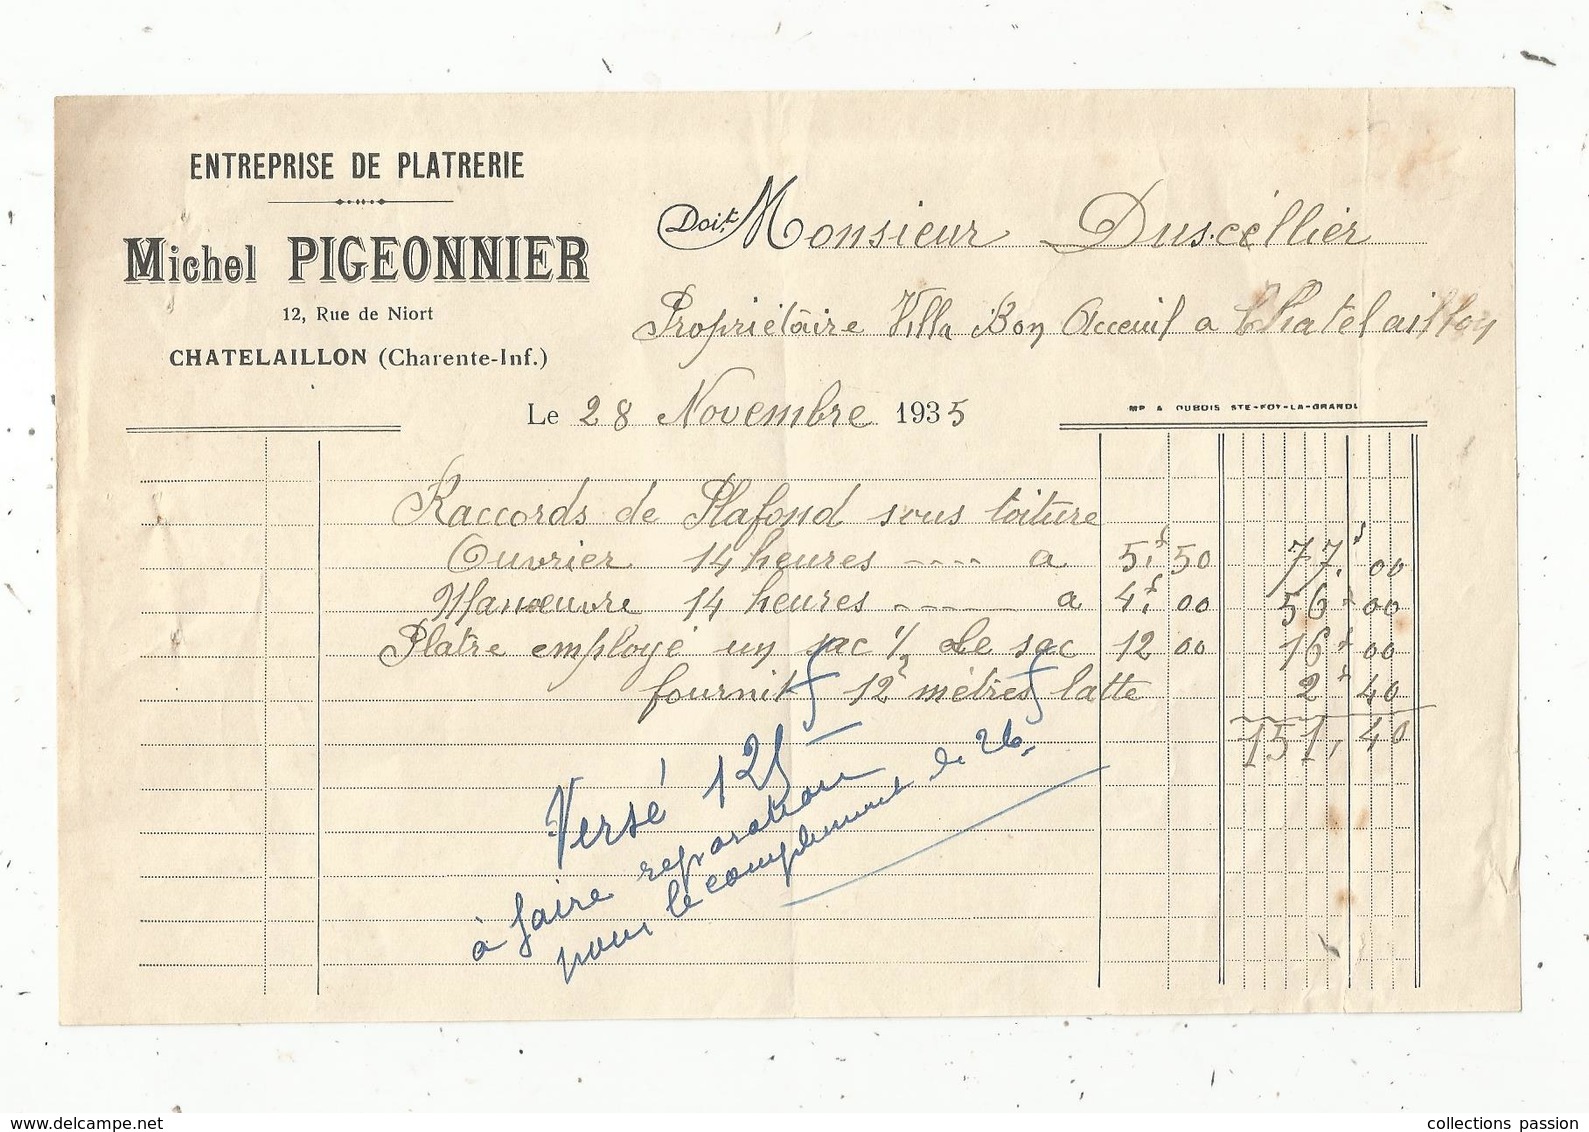 ENTREPRISE DE PLATRERIE
Michel PIGEONNIER
12, Rue de Niort
CHATELAILLON (Charente-Inf.)
Doit Monsieur Duscellier
Propriétaire Villa Bon Acceuil a Chatelaillon
Le 28 Novembre 1935
IMP A DUBOIS STE-FOY-LA-GRANDE
Raccords de Plafond sous toiture
Ouvrier 14 heures ---- a 5,f 50 77,f 00
Manœuvre 14 heures ---- a 4,f 00 56f 00
Platre employé un sac 1/2 Le sac 12 00 16f 00
fournit 12 mètres latte 2f 40
151,40
Versé 125f
à faire reparation
pour le complement de 26f
collections passion
www.delcampe.net